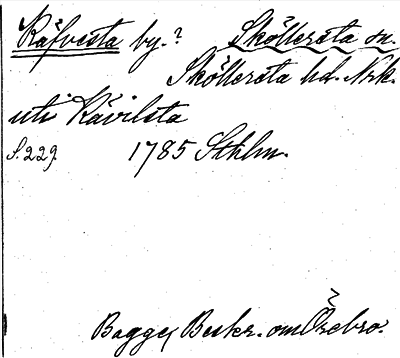 Räfvesta by.? Sköllersta sn.
Sköllersta hd. Nrk.
uti Kävilsta
S. 229. 1785 Sthlm.
Bagge, Beskr. om Örebro.